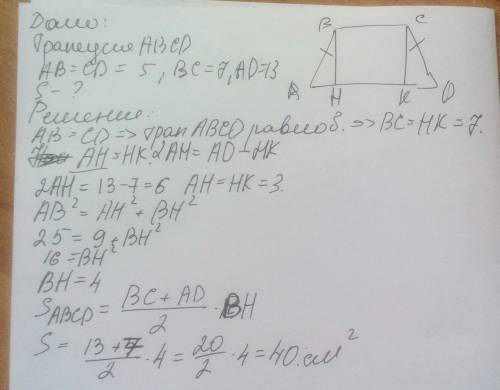 Дано:
Трапеция ABCD
AB = CD = 5, BC = 7, AD = 13
S - ?
B C
A H K D
Решение:
AB = CD => трап ABCD равноб. => BC = HK = 7.
AH = HK. 2AH = AD - HK
2AH = 13 - 7 = 6 AH = HK = 3.
AB² = AH² + BH²
25 = 9 + BH²
16 = BH²
BH = 4
S ABCD = (BC + AD)/2 · BH
S = (13 + 7)/2 · 4 = 20/2 · 4 = 40 см²